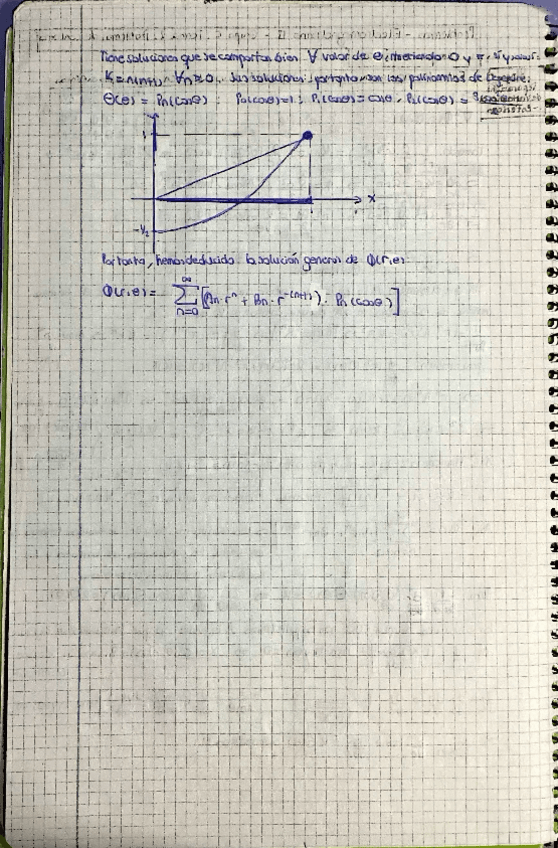 Tiene soluciones que se comportan bien ∀ valor de θ, incluyendo 0 y π, si y solo si
K = n(n+1), ∀n≥0. Sus soluciones, por tanto son los polinomios de Legendre:
Θ(θ) = Pn(cosθ) : P0(cosθ)=1; P1(cosθ)=cosθ, P2(cosθ) =
x
-1/2
Por tanto, hemos deducido la solución general de Φ(r,θ):
Φ(r,θ) = ∞ Σ n=0 [An·rⁿ + Bn·r^-(n+1)) · Pn(cosθ)]